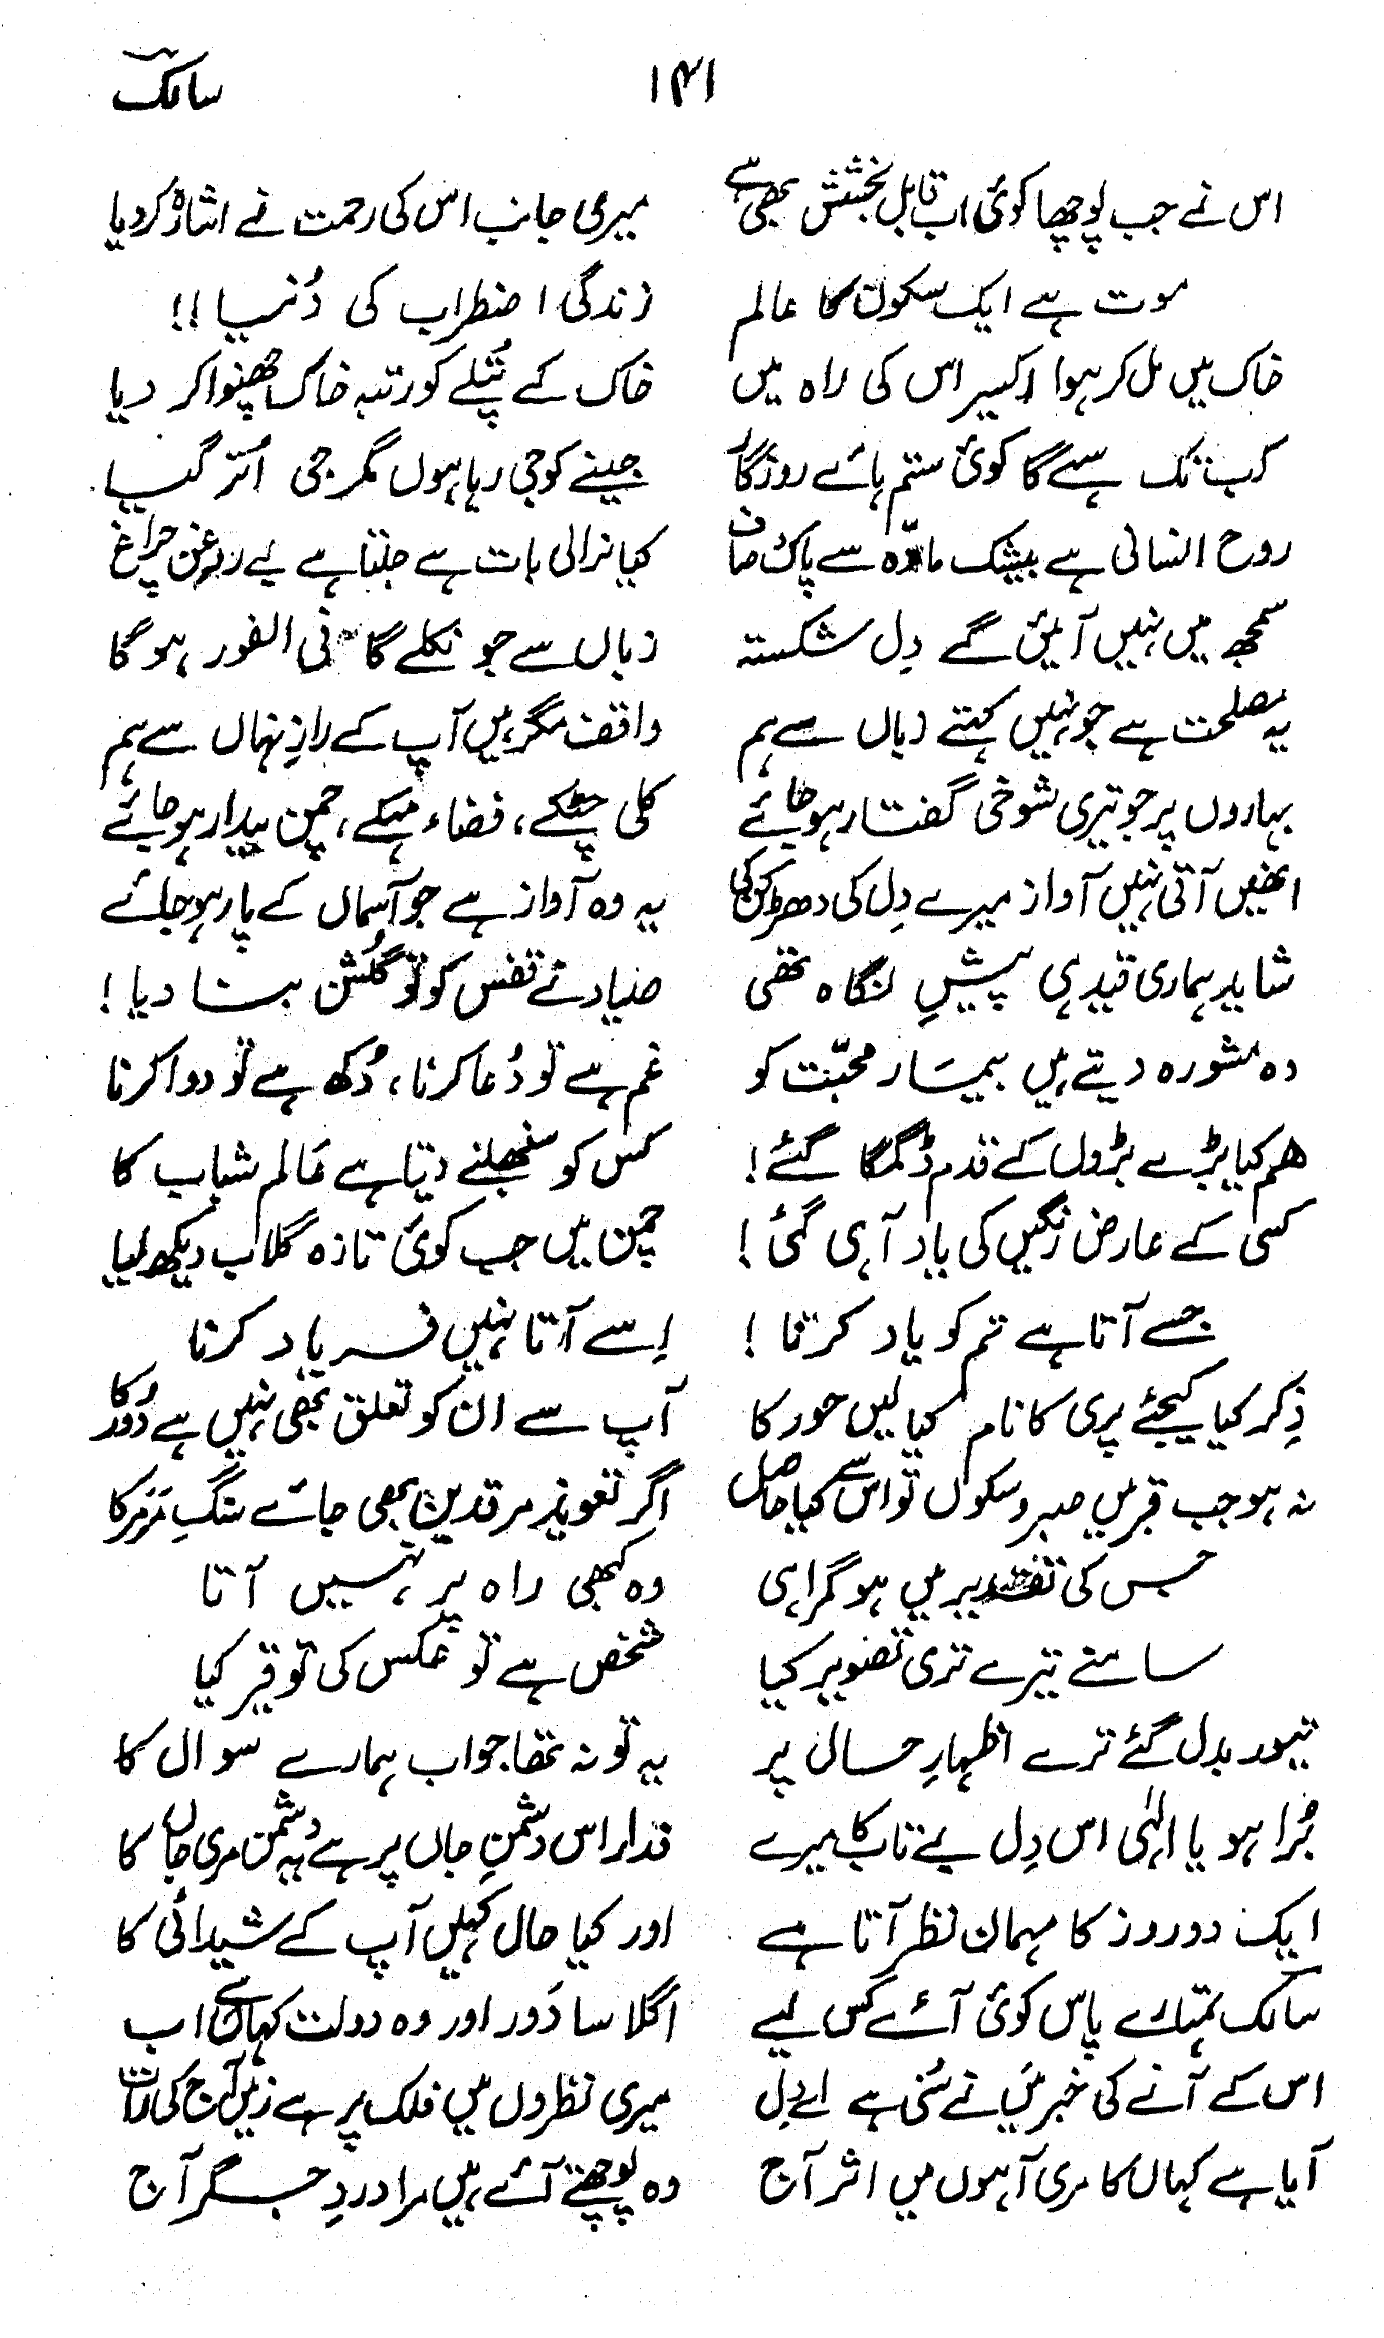 سالک ۱۴۱
اس نے جب پوچھا کوئی اب قابل بخشش بھی ہے میری جانب اس کی رحمت نے اشارہ کر دیا
موت ہے ایک سکون کا عالم زندگی اضطراب کی دُنیا !!
خاک میں مل کر ہوا اکسیر اس کی راہ میں خاک کے پُتلے کو رتبہ خاک چھنوا کر دیا
کب تک سہے گا کوئی ستم ہائے روزگار جینے کو جی رہا ہوں مگر جی اُتر گیا
روح انسانی ہے بیشک مادّہ سے پاک صاف کیا نرالی بات ہے جلتا ہے بے روغن چراغ
سمجھ میں نہیں آئیں گے دِل شکستہ زباں سے جو نکلے گا فی الفور ہو گا
یہ مصلحت ہے جو نہیں کہتے زباں سے ہم واقف مگر ہیں آپ کے رازِ نہاں سے ہم
بہاروں پر جو تیری شوخی گفتار ہو جائے کلی چٹکے، فضاء مہکے، چمن بیدار ہو جائے
انھیں آتی نہیں آواز میرے دِل کی دھڑکن کی یہ وہ آواز ہے جو آسماں کے پار ہو جائے
شاید ہماری قید ہی پیشِ نگاہ تھی صیاد نے قفس کو تو گلُشن بنا دیا !
وہ مشورہ دیتے ہیں بیمسَار محبّت کو غم ہے تو دُعا کرنا، دُکھ ہے تو دوا کرنا
ھم کیا بڑے بڑوں کے قدم ڈگمگا گئے ! کس کو سنبھلنے دیتا ہے عَالم شباب کا
کسی کے عارض رنگیں کی یاد آہی گئی ! چمن میں جب کوئی تازہ گلاب دیکھ لیا
جسے آتا ہے تم کو یاد کرنا ! اِسے آتا نہیں فریاد کرنا
ذِکر کیا کیجئے پری کا نام کیا لیں حور کا آپ سے ان کو تعلق بھی نہیں ہے دُور کا
نہ ہو جب قبر میں صبر و سکوں تو اس سے کیا حاصل اگر تعویذِ مرقد بن بھی جائے سنگِ مَرمَر کا
جس کی تقدیر میں ہو گمراہی وہ کبھی راہ پر نہیں آتا
سامنے تیرے تری تصویر کیا شخص ہے تو عکس کی توقیر کیا
تیور بدل گئے ترے اظہارِ حال پر یہ تو نہ تھا جواب ہمارے سوال کا
بُرا ہو یا الٰہی اس دِل بے تاب کا میرے فدا اس دشمنِ جاں پر ہے یہ دشمن مری جاں کا
ایک دو روز کا مہمان نظر آتا ہے اور کیا حال کہیں آپ کے شیدائی کا
سالک تمہارے پاس کوئی آئے کس لیے اگلا سا دَور اور وہ دولت کہاں ہے اب
اس کے آنے کی خبر میَں نے سُنی ہے اے دِل میری نظروں میں فلک پر ہے زمیں آج کی رات
آیا ہے کہاں کا مری آہوں میں اثر آج وہ پوچھنے آئے ہیں مرا دردِ جگر آج